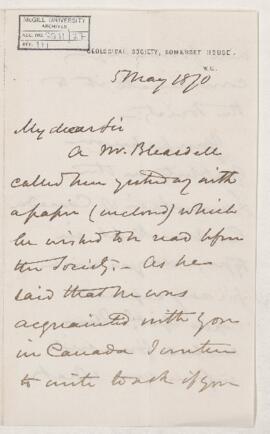 McGILL UNIVERSITY
ARCHIVES
ACC. NO.
REF.
GEOLOGICAL SOCIETY, SOMERSET HOUSE.
W.C.
5 May 1870
My dear Sir
A Mr. Bleasdell
called here yesterday with
a paper (inclosed) which
he wished to be read before
the Society. - As he
said that he was
acquainted with you
in Canada I venture
to write to ask if you